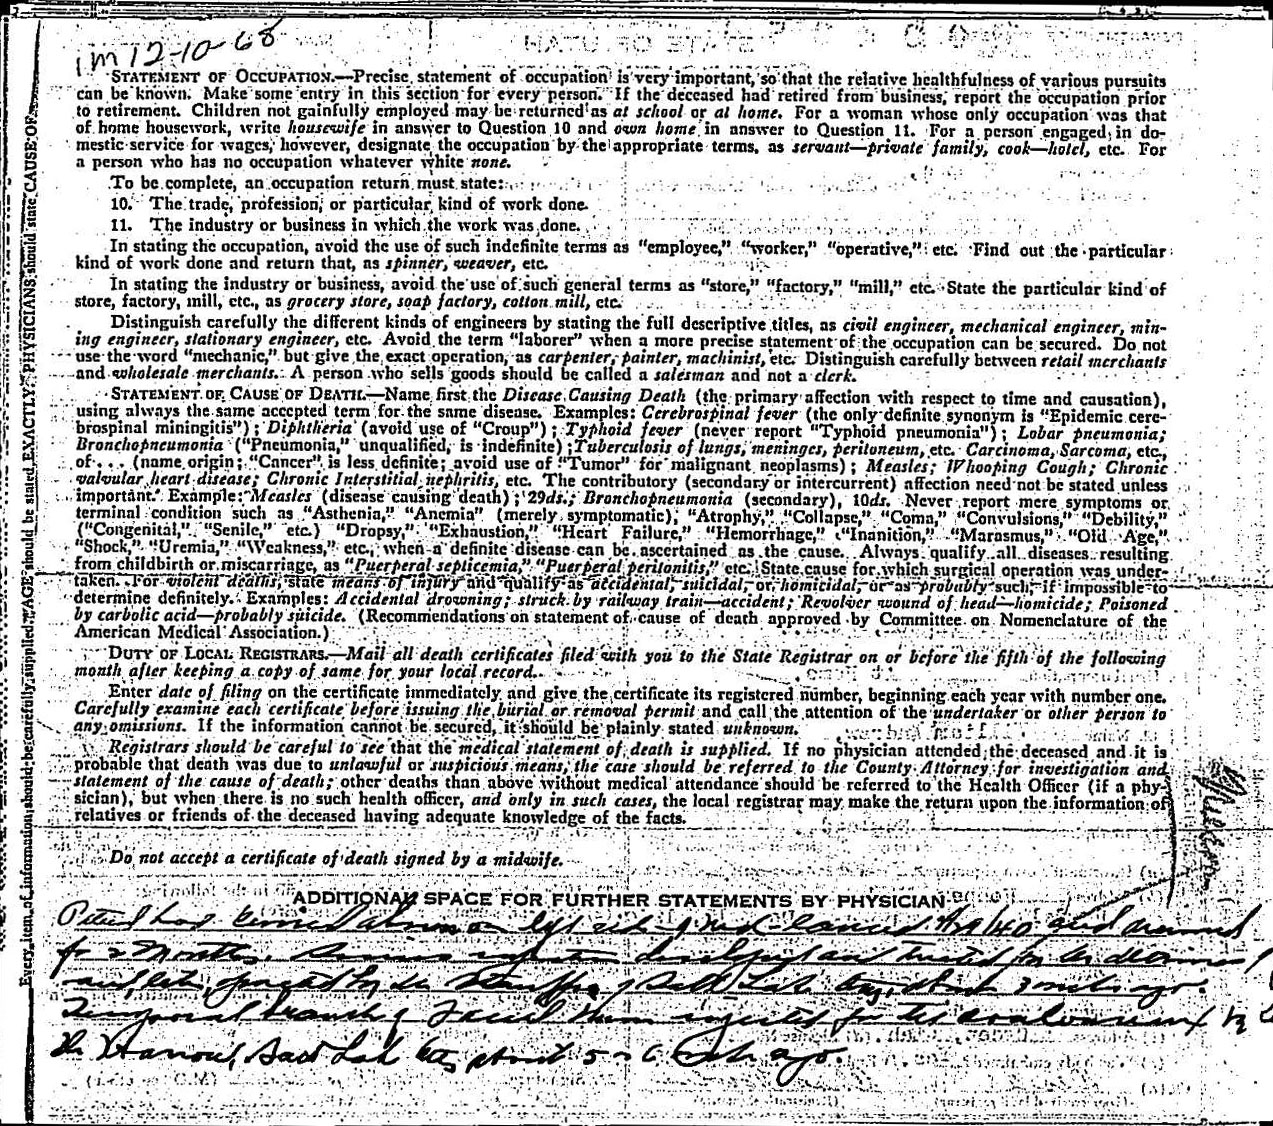 1m 12-10-68
STATE OF UTAH
STATEMENT OF OCCUPATION.—Precise statement of occupation is very important, so that the relative healthfulness of various pursuits
can be known. Make some entry in this section for every person. If the deceased had retired from business, report the occupation prior
to retirement. Children not gainfully employed may be returned as at school or at home. For a woman whose only occupation was that
of home housework, write housewife in answer to Question 10 and own home in answer to Question 11. For a person engaged in do-
mestic service for wages, however, designate the occupation by the appropriate terms, as servant—private family, cook—hotel, etc. For
a person who has no occupation whatever white none.
To be complete, an occupation return must state:
10. The trade, profession, or particular kind of work done.
11. The industry or business in which the work was done.
In stating the occupation, avoid the use of such indefinite terms as "employee," "worker," "operative," etc. Find out the particular
kind of work done and return that, as spinner, weaver, etc.
In stating the industry or business, avoid the use of such general terms as "store," "factory," "mill," etc. State the particular kind of
store, factory, mill, etc., as grocery store, soap factory, cotton mill, etc.
Distinguish carefully the different kinds of engineers by stating the full descriptive titles, as civil engineer, mechanical engineer, min-
ing engineer, stationary engineer, etc. Avoid the term "laborer" when a more precise statement of the occupation can be secured. Do not
use the word "mechanic," but give the exact operation, as carpenter, painter, machinist, etc. Distinguish carefully between retail merchants
and wholesale merchants. A person who sells goods should be called a salesman and not a clerk.
STATEMENT OF CAUSE OF DEATH.—Name first the Disease Causing Death (the primary affection with respect to time and causation),
using always the same accepted term for the same disease. Examples: Cerebrospinal fever (the only definite synonym is "Epidemic cere-
brospinal miningitis"); Diphtheria (avoid use of "Croup"); Typhoid fever (never report "Typhoid pneumonia"); Lobar pneumonia;
Bronchopneumonia ("Pneumonia," unqualified, is indefinite); Tuberculosis of lungs, meninges, peritoneum, etc. Carcinoma, Sarcoma, etc.,
of . . . (name origin; "Cancer" is less definite; avoid use of "Tumor" for malignant neoplasms); Measles; Whooping Cough; Chronic
valvular heart disease; Chronic Interstitial nephritis, etc. The contributory (secondary or intercurrent) affection need not be stated unless
important. Example: Measles (disease causing death); 29ds.; Bronchopneumonia (secondary), 10ds. Never report mere symptoms or
terminal condition such as "Asthenia," "Anemia" (merely symptomatic), "Atrophy," "Collapse," "Coma," "Convulsions," "Debility,"
("Congenital," "Senile," etc.) "Dropsy," "Exhaustion," "Heart Failure," "Hemorrhage," "Inanition," "Marasmus," "Old Age,"
"Shock," "Uremia," "Weakness," etc., when a definite disease can be ascertained as the cause. Always qualify all diseases resulting
from childbirth or miscarriage, as "Puerperal septicemia," "Puerperal peritonitis," etc. State cause for which surgical operation was under-
taken. For violent deaths, state means of injury and qualify as accidental, suicidal, or homicidal, or as probably such, if impossible to
determine definitely. Examples: Accidental drowning; struck by railway train—accident; Revolver wound of head—homicide; Poisoned
by carbolic acid—probably suicide. (Recommendations on statement of cause of death approved by Committee on Nomenclature of the
American Medical Association.)
DUTY OF LOCAL REGISTRARS.—Mail all death certificates filed with you to the State Registrar on or before the fifth of the following
month after keeping a copy of same for your local record.
Enter date of filing on the certificate immediately and give the certificate its registered number, beginning each year with number one.
Carefully examine each certificate before issuing the burial or removal permit and call the attention of the undertaker or other person to
any omissions. If the information cannot be secured, it should be plainly stated unknown.
Registrars should be careful to see that the medical statement of death is supplied. If no physician attended the deceased and it is
probable that death was due to unlawful or suspicious means, the case should be referred to the County Attorney for investigation and
statement of the cause of death; other deaths than above without medical attendance should be referred to the Health Officer (if a phy-
sician), but when there is no such health officer, and only in such cases, the local registrar may make the return upon the information of
relatives or friends of the deceased having adequate knowledge of the facts.
Do not accept a certificate of death signed by a midwife.
ADDITIONAL SPACE FOR FURTHER STATEMENTS BY PHYSICIAN
had on left side of
for 2 months. developed and treated by
by Dr of Salt Lake City, about 3 months ago.
branch of for by
Dr Salt Lake City about 5 or 6 months ago.
Every item of information should be carefully supplied. AGE should be stated EXACTLY. PHYSICIANS should state CAUSE OF